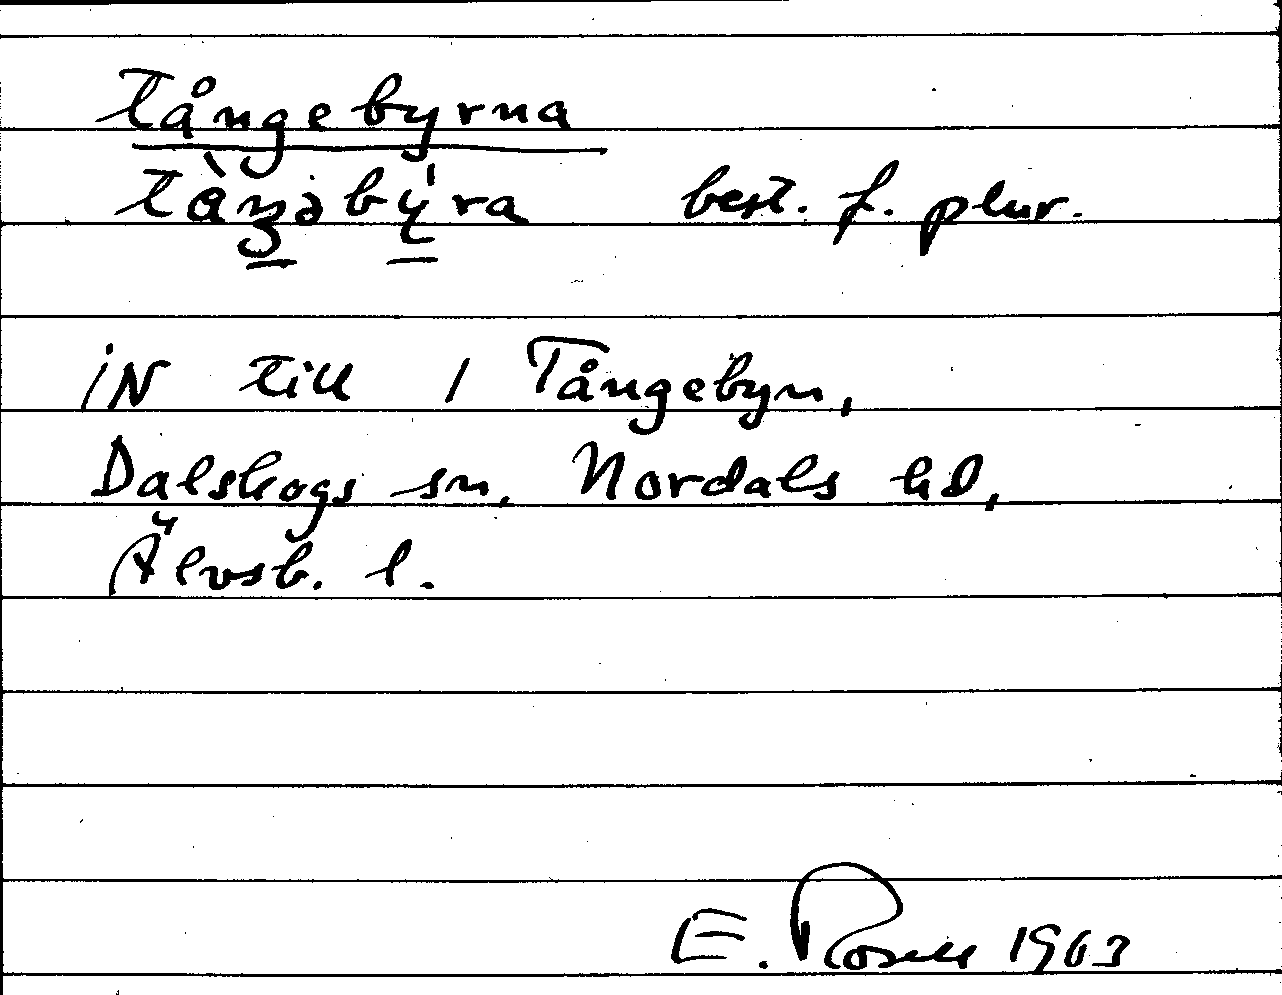 tångebyrna
tàŋəbýra best. f. plur.
iN till 1 Tångebyn,
Dalskogs sn, Nordals hd,
Älvsb. l.
E. Rosell 1963